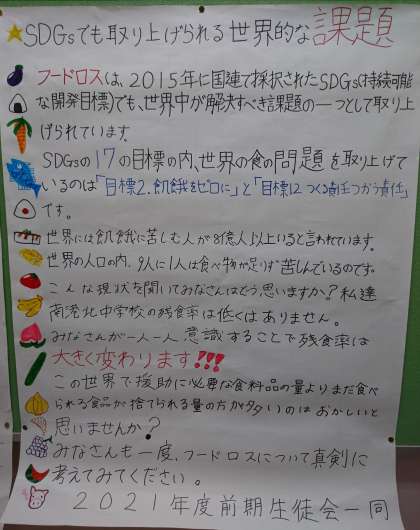 SDGsでも取り上げられる世界的な課題
フードロスは、2015年に国連で採択されたSDGs(持続可能
な開発目標)でも、世界中が解決すべき課題の一つとして取り上
げられています。
SDGsの17の目標の内、世界の食の問題を取り上げて
いるのは「目標2.飢餓をゼロに」と「目標12つくる責任つかう責任」
です。
世界には飢餓に苦しむ人が8億人以上いると言われています。
世界の人口の内、9人に1人は食べ物が足りず苦しんでいるのです。
こんな現状を聞いてみなさんはどう思いますか?私達
南港北中学校の残食率は低くはありません。
みなさんが一人一人意識することで残食率は
大きく変わります!!!
この世界で援助に必要な食料品の量よりまだ食べ
られる食品が捨てられる量の方が多いのはおかしいと
思いませんか?
みなさんも一度、フードロスについて真剣に
考えてみてください。
2021年度前期生徒会一同